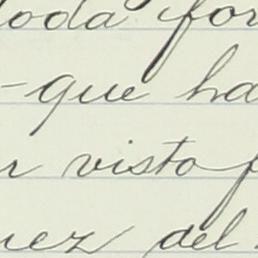 toda for
-que ha
r visto f
uez del